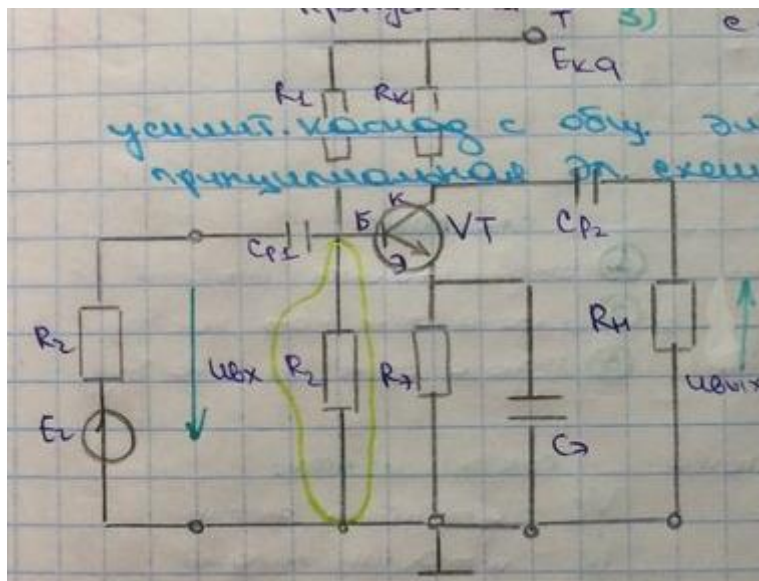 T 3) с
Eка
R1 Rк
усилит. каскад с общ. эм
принципиальная эл. схем
К
Б VT
Cр1 Cр2
Э
Rг Uвх R2 Rэ Rн
Uвых
Eг Cэ